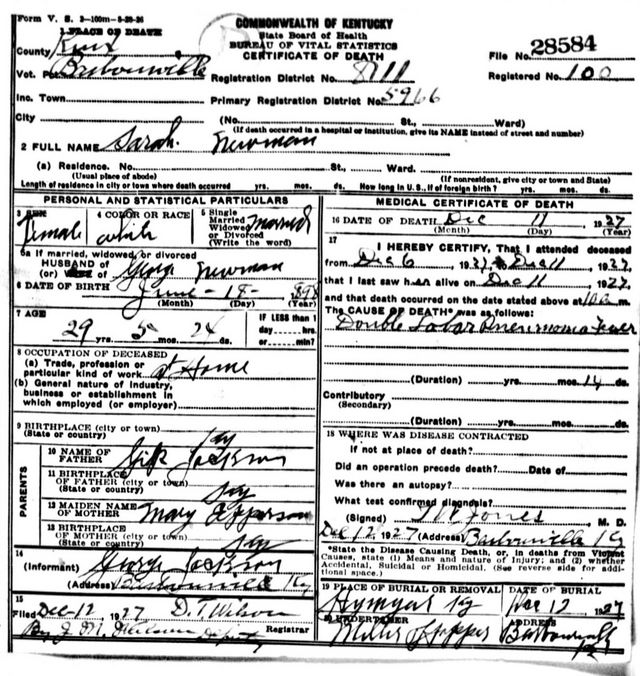 Form V. S. 2-100m-5-28-26
COMMONWEALTH OF KENTUCKY
State Board of Health
BUREAU OF VITAL STATISTICS
CERTIFICATE OF DEATH
1 PLACE OF DEATH
County Knox
Vot. Pct Barbourville
File No. 28584
Registration District No. 811
Registered No. 100
Inc. Town
Primary Registration District No. 5966
City (No. St., Ward)
(If death occurred in a hospital or institution, give its NAME instead of street and number)
2 FULL NAME Sarah Newman
(a) Residence. No. St., Ward.
(Usual place of abode) (If nonresident, give city or town and State)
Length of residence in city or town where death occurred yrs. mos. ds. How long in U. S., if of foreign birth? yrs. mos. ds.
PERSONAL AND STATISTICAL PARTICULARS
3 SEX Female
4 COLOR OR RACE white
5 Single Married Widowed or Divorced (Write the word) married
5a If married, widowed, or divorced
HUSBAND of
(or) of George Newman
6 DATE OF BIRTH June 18
(Month) (Day) (Year)
7 AGE
29 yrs. 5 mos. 24 ds.
IF LESS than 1 day hrs. or min?
8 OCCUPATION OF DECEASED
(a) Trade, profession or particular kind of work at Home
(b) General nature of industry, business or establishment in which employed (or employer)
9 BIRTHPLACE (city or town)
(State or country) Ky
PARENTS
10 NAME OF FATHER Jackson
11 BIRTHPLACE OF FATHER (city or town)
(State or country) Ky
12 MAIDEN NAME OF MOTHER Mary
13 BIRTHPLACE OF MOTHER (city or town)
(State or country) Ky
14
(Informant) George Jackson
(Address) Barbourville Ky
15
Filed Dec-12, 1927 D. T. Wilson
By J. M. Wilson Deputy Registrar
MEDICAL CERTIFICATE OF DEATH
16 DATE OF DEATH Dec 11 1927
(Month) (Day) (Year)
17
I HEREBY CERTIFY, That I attended deceased
from Dec 6, 1927, to Dec 11, 1927,
that I last saw her alive on Dec 11, 1927,
and that death occurred on the date stated above at m.
The CAUSE OF DEATH* was as follows:
Double Lobar Pneumonia Fever
(Duration) yrs. mos. 14 ds.
Contributory
(Secondary)
(Duration) yrs. mos. ds.
18 WHERE WAS DISEASE CONTRACTED
If not at place of death?
Did an operation precede death? Date of
Was there an autopsy?
What test confirmed diagnosis?
(Signed) Jones M. D.
Dec 12, 1927 (Address) Barbourville Ky
*State the Disease Causing Death, or, in deaths from Violent
Causes, state (1) Means and nature of Injury; and (2) whether
Accidental, Suicidal or Homicidal. (See reverse side for addi-
tional space.)
19 PLACE OF BURIAL OR REMOVAL DATE OF BURIAL
Hymyar Ky Dec 12 1927
20 UNDERTAKER ADDRESS
Miller Hopper Barbourville
Ky